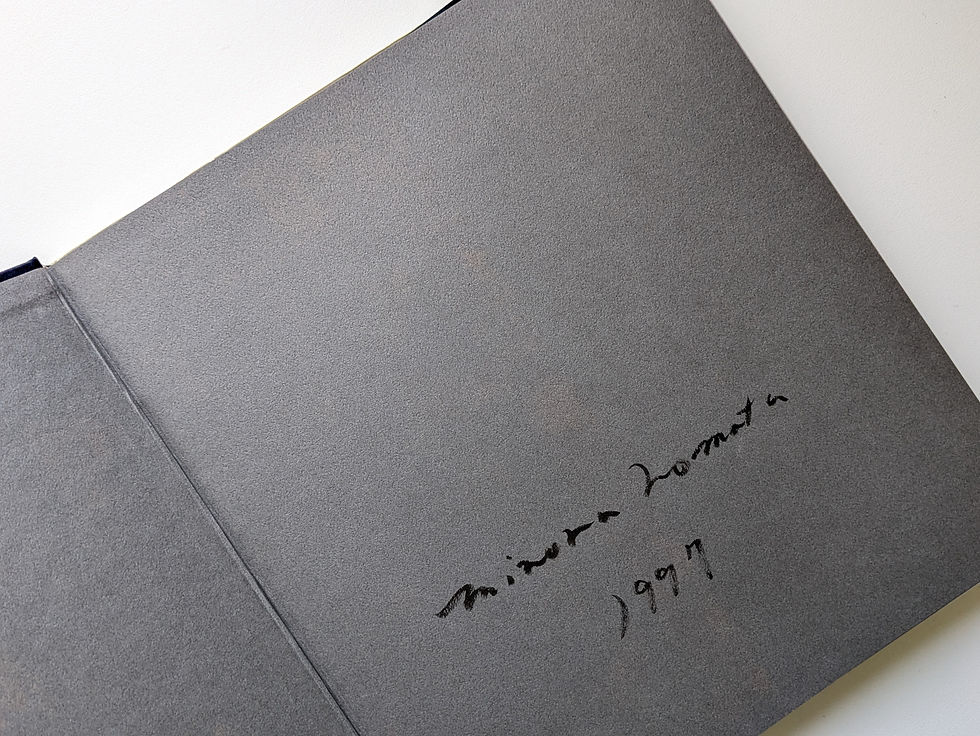 minoru nomata
1997